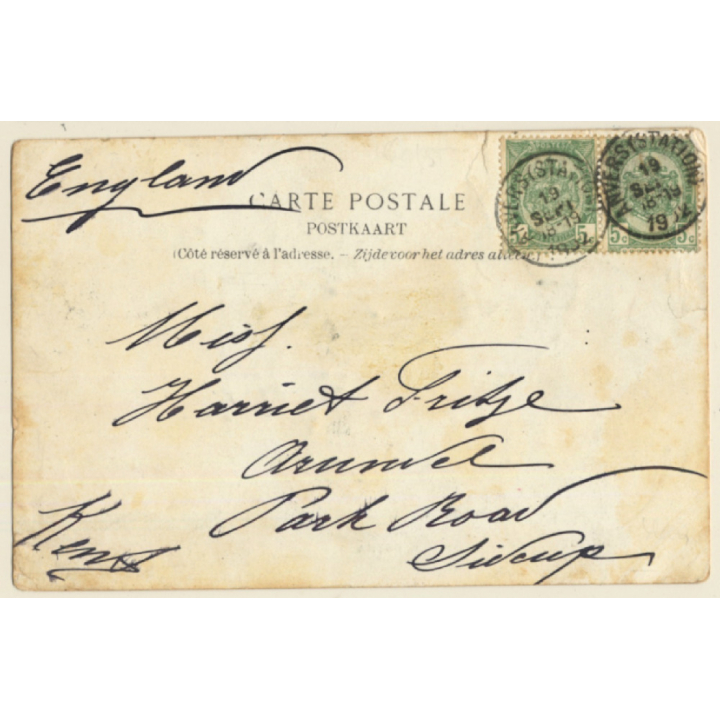 England
CARTE POSTALE
POSTKAART
(Côté réservé à l'adresse. – Zijde voor het adres
Miss.
Harriet Fritze
Arundel
Park Road
Sidcup
Kent
ANVERS (STATION)
19
SEPT
18-19
ANVERS (STATION)
19
18-19
19
5 c 5 c